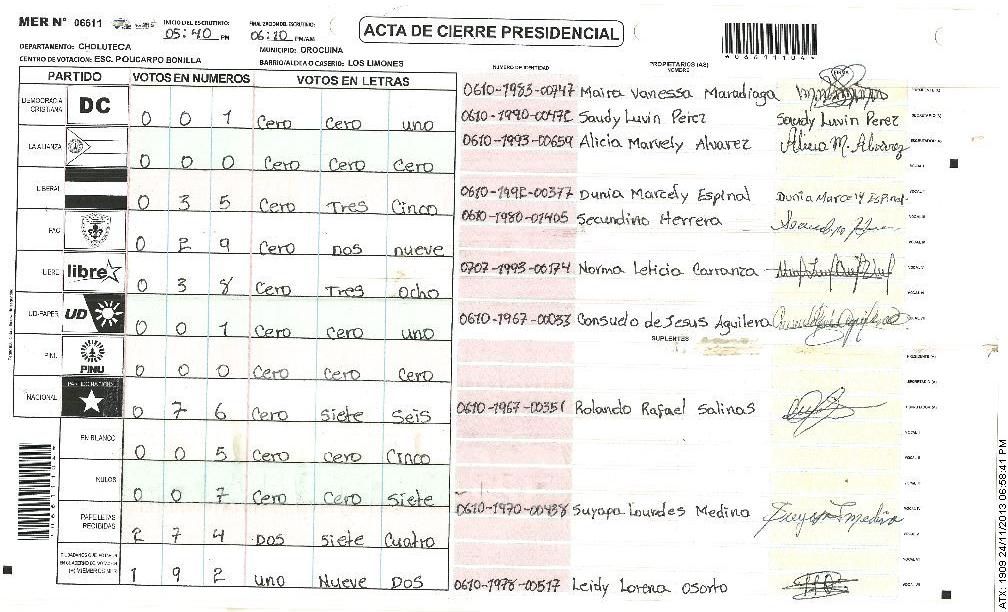 MER N° 06611
INICIO DEL ESCRUTINIO: 05:40 PM
FINALIZACION DEL ESCRUTINIO: 06:10 PM/AM
ACTA DE CIERRE PRESIDENCIAL
*06611104*
DEPARTAMENTO: CHOLUTECA
MUNICIPIO: OROCUINA
CENTRO DE VOTACION: ESC. POLICARPO BONILLA
BARRIO/ALDEA O CASERIO: LOS LIMONES
PARTIDO VOTOS EN NUMEROS VOTOS EN LETRAS
DEMOCRACIA CRISTIANA DC 0 0 1 Cero Cero uno
LA ALIANZA 0 0 0 Cero Cero Cero
LIBERAL 0 3 5 Cero Tres Cinco
PAC 0 2 9 Cero Dos nueve
LIBRE libre 0 3 8 Cero Tres Ocho
UD-FAPER UD 0 0 1 Cero Cero uno
PINU PINU 0 0 0 Cero Cero Cero
NACIONAL PARTIDO NACIONAL 0 7 6 Cero Siete Seis
EN BLANCO 0 0 5 Cero Cero Cinco
NULOS 0 0 7 Cero Cero Siete
PAPELETAS RECIBIDAS 2 7 4 Dos Siete Cuatro
CIUDADANOS QUE VOTARON EN CUADERNO DE VOTACION (+) MIEMBROS MER 1 9 2 uno Nueve Dos
NUMERO DE IDENTIDAD PROPIETARIOS (AS) NOMBRE FIRMA
0610-1983-00747 Maira Vanessa Maradiaga
Saudy Luvin Perez Saudy Luvin Perez
0610-1993-00659 Alicia Marvely Alvarez Alicia M. Alvarez
Dunia Marcely Espinal Dunia Marcely Espinal
0610-1980-01405 Secundino Herrera
0707-1993-00174 Norma Leticia Carranza
0610-1967-00033 Consuelo de Jesus Aguilera
SUPLENTES
0610-1967-00351 Rolando Rafael Salinas
0610-1970-00438 Suyapa Lourdes Medina
0610-1978-00517 Leidy Lorena Osorto
*06611104*
ATX: 1909 24/11/2013 06:58:41 PM